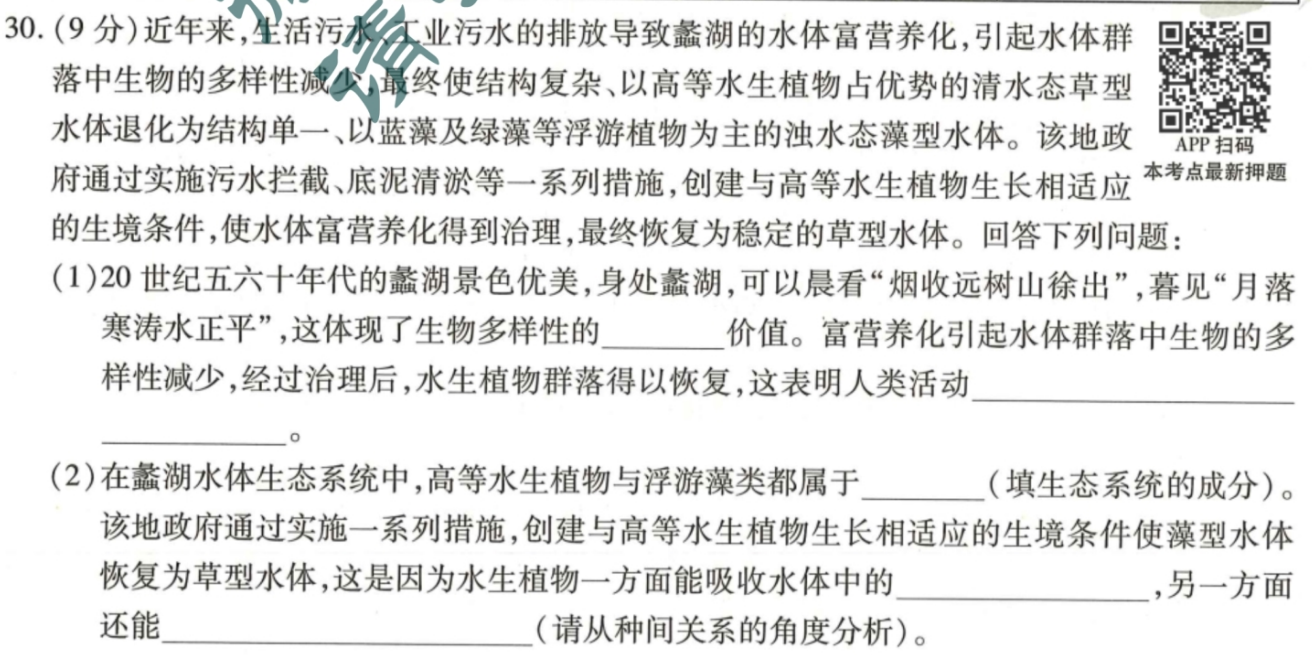 30.(9 分)近年来,生活污水、工业污水的排放导致蠡湖的水体富营养化,引起水体群
落中生物的多样性减少,最终使结构复杂、以高等水生植物占优势的清水态草型
水体退化为结构单一、以蓝藻及绿藻等浮游植物为主的浊水态藻型水体。该地政
府通过实施污水拦截、底泥清淤等一系列措施,创建与高等水生植物生长相适应
的生境条件,使水体富营养化得到治理,最终恢复为稳定的草型水体。回答下列问题:
APP 扫码
本考点最新押题
(1)20 世纪五六十年代的蠡湖景色优美,身处蠡湖,可以晨看“烟收远树山徐出”,暮见“月落
寒涛水正平”,这体现了生物多样性的________价值。富营养化引起水体群落中生物的多
样性减少,经过治理后,水生植物群落得以恢复,这表明人类活动____________________
____________。
(2)在蠡湖水体生态系统中,高等水生植物与浮游藻类都属于________(填生态系统的成分)。
该地政府通过实施一系列措施,创建与高等水生植物生长相适应的生境条件使藻型水体
恢复为草型水体,这是因为水生植物一方面能吸收水体中的________________,另一方面
还能________________________(请从种间关系的角度分析)。
清